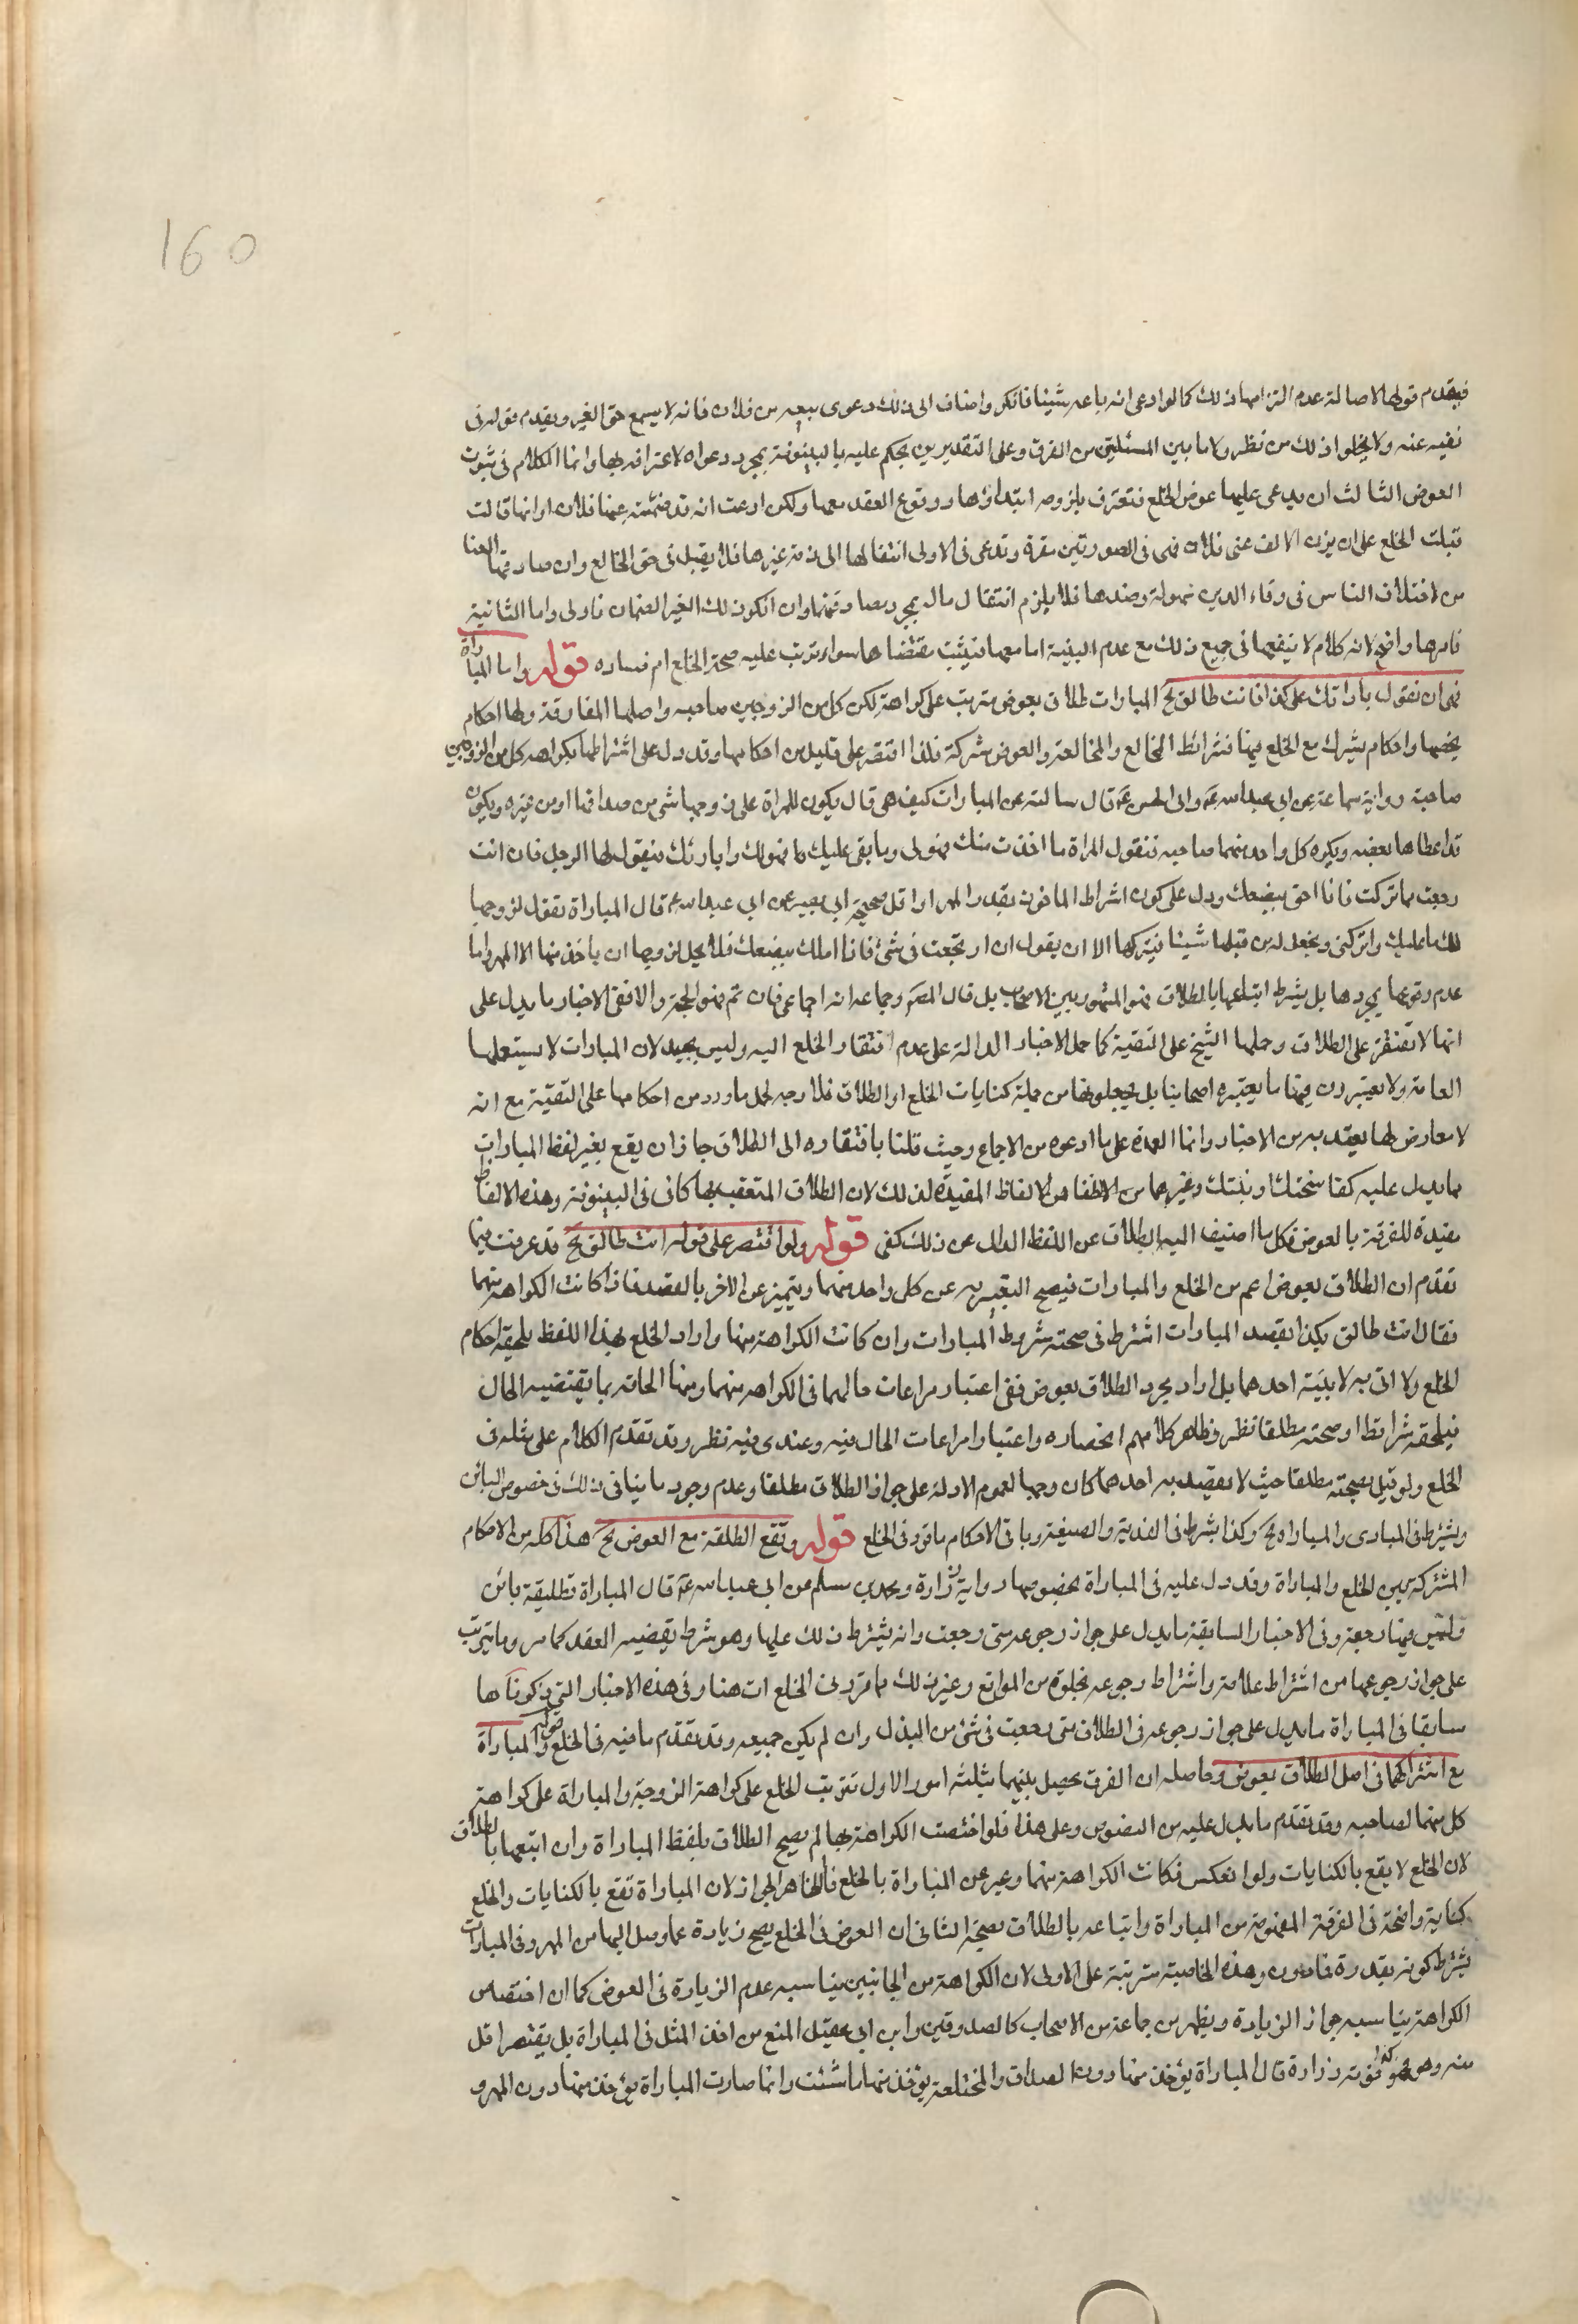 160
فيقدم قولها لاصالة عدم التزامها ذلك كما لو ادعى انه باعه شيئا فانكر واضاف الى ذلك دعوى بيعه من فلان فانه لا يسمع حق الغير ويقدم قوله في
نفيه عنه ولا يخلو ذلك من نظر ولا ما بين المسئلتين من الفرق وعلى التقديرين يحكم عليه بالبينونة بمجرد دعواه لاعترافه بها وانما الكلام في ثبوت
العوض الثالث ان يدعى عليها عوض الخلع فتعترف بلزومه ابتداؤها ووقوع العقد معها ولكن ادعت انه قد ضمنته عنها فلان او انها قالت
قبلت الخلع على ان يزن الالف عنى فلان فهى في الصورتين مقرة وتدعى في الاولى انتقالها الى ذمة غيرها فلا يقبل في حق الخالع وان صادقها الغنا
من اختلاف الناس في وفاء الدين سهولة وضدها فلا يلزم انتقال مال بمجرد مصادقتها وان انكر ذلك الغير الضمان فاولى واما الثانية
فامرها واضح لانه كلام لا ينفعها في جميع ذلك مع عدم البينة اما معها فيثبت مقتضاها سواء ترتب عليه صحة الخلع ام فساده قوله واما المباراة
فهى ان تقول باراتك على كذا فانت طالق الخ المبارات طلاق بعوض مترتب على كراهة لكن كل من الزوجين صاحبه واصلها المفارقة ولها احكام
يخصها واحكام يشرك مع الخلع فيها فشرائط الخالع والمخالعة والعوض مشركة فلذا اقتصر على قليل من احكامها وقد دل على اشتراطها بكراهه كل من الزوجين
صاحبه رواية سماعة عن ابى عبد الله ع وابى الحسن ع قال سالته عن المبارات كيف هى قال يكون للمراة على زوجها شى من صداقها او من غيره ويكون
قد اعطاها بعضه ويكره كل واحد منهما صاحبه فتقول المراة ما اخذت منك فهو لى وما بقى عليك فهو لك وابارئك فيقول لها الرجل فان انت
رجعت مما تركت فانا احق ببضعك ودل على كون اشراط الماخوذ بقدر المهر او اقل صحيحة ابى بصير عن ابى عبد الله ع قال المباراة تقول لزوجها
لك ما عليك واتركنى ويجعل له من قبلها شيئا فيتركها الا ان يقول ان ارتجعت في شئ فانا املك ببضعك فلا يحل لزوجها ان ياخذ منها الا المهر واما
عدم وقوعها بمجردها بل يشرط اتباعها بالطلاق فهو المشهور بين الاصحاب بل قال المصنف وجماعه انه اجماعى فان تم فهو الحجة والا ففى الاخبار ما يدل على
انها لا تفتقر على الطلاق وحملها الشيخ على التقية كما حمل الاخبار الدالة على عدم افتقار الخلع اليه وليس بجيد لان المبارات لا يستعملها
العامة ولا يعتبرون فيها ما يعتبره اصحابنا بل يجعلونها من جملة كنايات الخلع او الطلاق فلا وجه لحمل ما ورد من احكامها على التقية مع انه
لا معارض لها يعتد به من الاخبار وانما العمدة على ما ادعوه من الاجماع وحيث قلنا بافتقاره الى الطلاق جاز ان يقع بغير لفظ المبارات
مما يدل عليه كفاسختك او بنتك وغيرهما من الالفاظ المفيدة لذلك لان الطلاق المتعقب بها كاف في البينونة وهذه الالفاظ
مفيدة للفرقة بالعوض فكل ما اضيف اليه الطلاق عن اللفظ الدال عن ذلك كفى قوله ولو اقتصر على قوله انت طالق الخ قد عرفت فيما
تقدم ان الطلاق بعوض اعم من الخلع والمبارات فيصح التعبير به عن كل واحد منهما ويتميز عن الاخر بالقصد فاذا كانت الكراهة منهما
فقال انت طالق بكذا بقصد المبارات اشترط في صحته شروط المبارات وان كانت الكراهة منها واراد الخلع بهذا اللفظ يلحقه احكام
الخلع ولا اتى به لا بنية احدهما بل اراد مجرد الطلاق بعوض ففى اعتبار مراعات حالهما في الكراهه منهما ومنها الحاقه بما يقتضيه الحال
فيلحقه شرائطه او صحته مطلقا نظر وظاهر كلامهم انحصاره واعتبار مراعات الحال فيه وعندى فيه نظر وقد تقدم الكلام على مثله في
الخلع ولو قيل بصحته مطلقا حيث لا يقصد به احدهما كان وجها لعموم الادلة على جواز الطلاق مطلقا وعدم وجود ما ينافى ذلك في خصوص البائن
ويشترط في المبارى والمباراه الخ وكذا يشرط في الفدية والصيغة وباقى الاحكام ما قرر في الخلع قوله وتقع الطلقة مع العوض الخ هذا كله من الاحكام
المشتركة بين الخلع والمباراة وقد دل عليه في المباراة بخصوصها رواية زرارة ومحمد بن مسلم عن ابى عبد الله ع قال المباراة تطليقة بائن
وليس فيها رجعة وفى الاخبار السابقة ما يدل على جواز رجوعه متى رجعت وانه يشترط ذلك عليها وهو شرط يقتضيه العقد كما مر وما يترتب
على جواز رجوعها من اشتراط علامة واشتراط رجوعه بخلوه من الموانع وغير ذلك مما قرر في الخلع ات هنا وفى هذه الاخبار التي ذكرناها
سابقا في المباراة ما يدل على جواز رجوعه في الطلاق متى رجعت في شئ من البذل وان لم يكن جميعه وقد تقدم ما فيه في الخلع قوله والمباراة
مع اشتراكهما في اصل الطلاق بعوض وحاصله ان الفرق يحصل بينهما بثلثه امور الاول ترتب الخلع على كراهة الزوجة والمباراة على كراهة
كل منهما لصاحبه وقد تقدم ما يدل عليه من النصوص وعلى هذا فلو اختصت الكراهة بها لم يصح الطلاق بلفظ المباراة وان اتبعها بالطلاق
لان الخلع لا يقع بالكنايات ولو انعكس فكانت الكراهة منهما وعبر عن المباراة بالخلع فالظاهر الجواز لان المباراة تقع بالكنايات والخلع
كناية واضحة في الفرقة المفهومة من المباراة واتباعه بالطلاق بصحة الثانى ان العوض في الخلع يصح زيادة عما وصل اليها من المهر وفى المبارات
يشترط كونه بقدرة فما دون وهذه الخاصية مترتبة على الاولى لان الكراهة من الجانبين يناسبه عدم الزيادة في العوض كما ان اختصاص
الكراهة يناسبه جواز الزيادة ويظهر من جماعة من الاصحاب كالصدوقين وابن ابى عقيل المنع من اخذ المثل في المباراة بل يقتصر اقل
منه وهو زرارة قال المباراة يؤخذ منها دون الصداق والمختلعة يؤخذ منها ما شئت وانما صارت المباراة يؤخذ منها دون المهر و